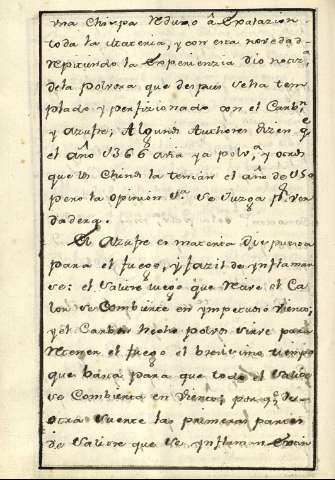 una chispa reduxo â Exalazion
toda la Materia, y con esta novedad
repitiendo la Experienzia dio notiz.ª
de la Polvora que despues se ha tem
plado y perfizionado con el Carbn
y Azufre, Algunos Authores dizen q̃
el año 1366 avia ya Polvª y otros
que los Chinos la tenian el año de 85
pero la opinion 1ª se Juzga pr. ver
dadera.
El Azufre es materia dispuesta
para el fuego, y fazil de Ynflamar
se: el Salitre luego que rezive el Ca
lor se Combierte en ympetuoso Viento,
y el Carbon hecho polvos sirve para
retener el fuego el brevissimo tiempo
que basta para que todo el Salitre
se Combierta en Viento; porq̃ de
otra suerte las primeras partes
de Salitre que se ynflaman